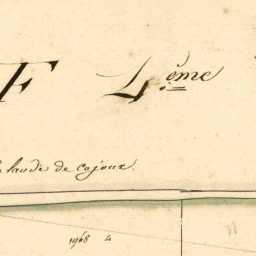 F 4.ème
lande de cajoux.
1968 4